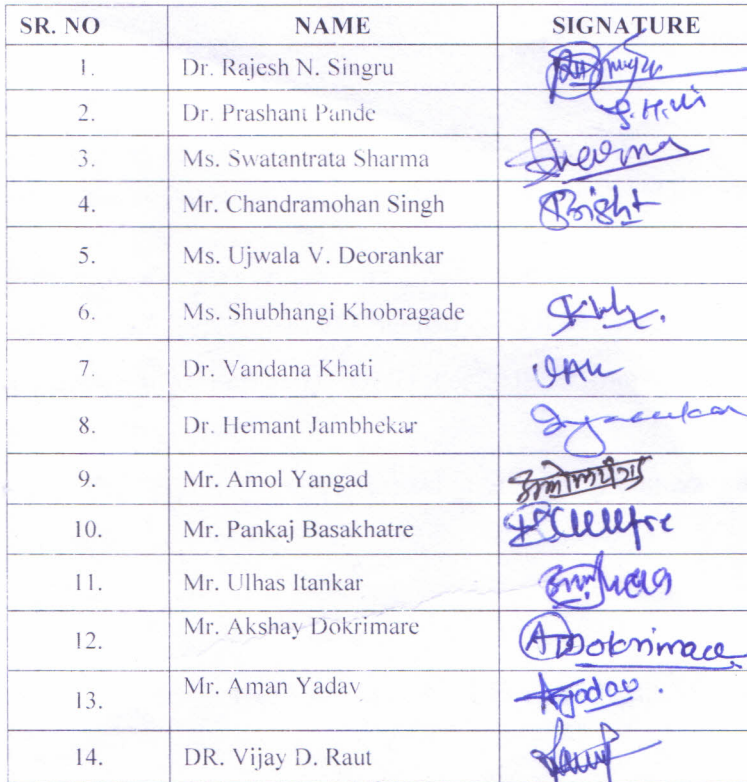 SR. NO NAME SIGNATURE
1. Dr. Rajesh N. Singru
2. Dr. Prashant Pande
3. Ms. Swatantrata Sharma Sharma
4. Mr. Chandramohan Singh
5. Ms. Ujwala V. Deorankar
6. Ms. Shubhangi Khobragade
7. Dr. Vandana Khati
8. Dr. Hemant Jambhekar
9. Mr. Amol Yangad
10. Mr. Pankaj Basakhatre
11. Mr. Ulhas Itankar
12. Mr. Akshay Dokrimare ADokrimare
13. Mr. Aman Yadav AYadav.
14. DR. Vijay D. Raut